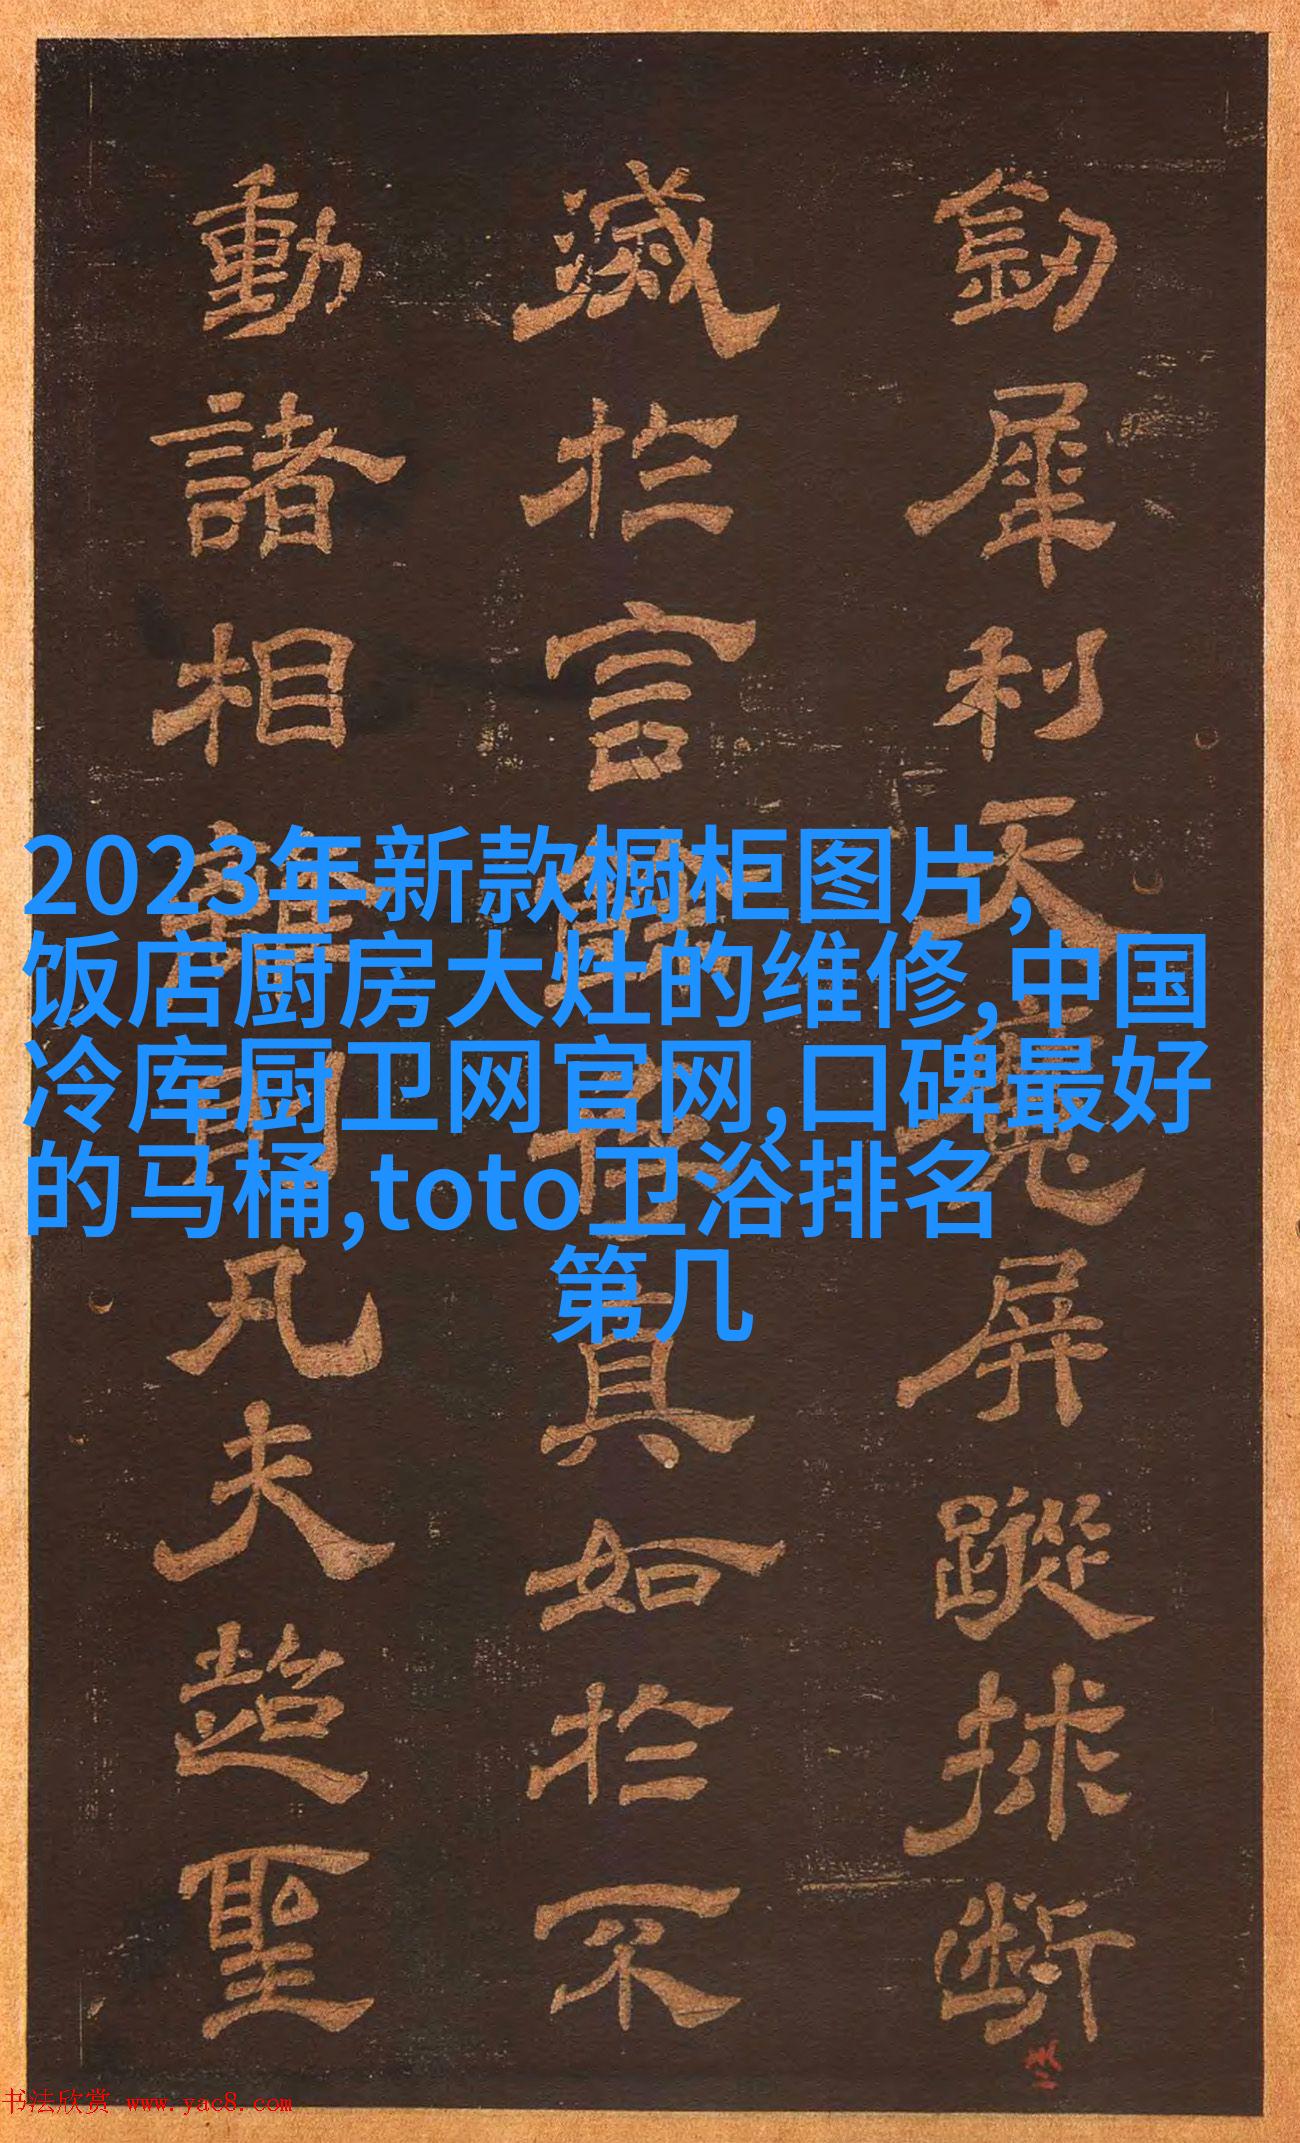 釼犀利天魔屏蹤斷
滅於言真如於不
動諸相離凡夫超聖
2023年新款橱柜图片,
饭店厨房大灶的维修,中国
冷库厨卫网官网,口碑最好
的马桶,toto卫浴排名
第几
书法欣赏 www.yac8.com